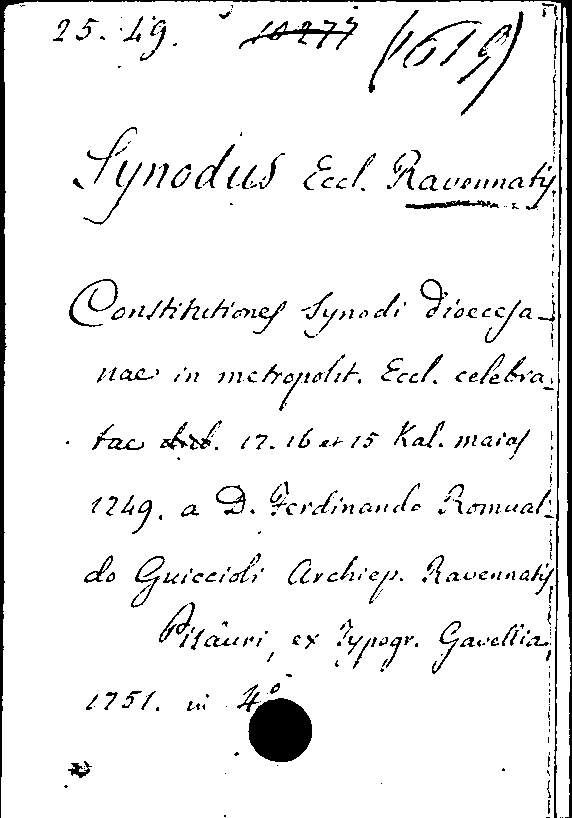 25.49. 10277 (1619)
Synodus Eccl. Ravennatis
Constitutiones Synodi dioecesa-
nae in metropolit. Eccl. celebra-
tae dieb. 17. 16 et 15 Kal. maias
1749. a D. Ferdinando Romual-
do Guiccioli Archiep. Ravennatis
Pisauri, ex Typogr. Gavellia,
1751. in 4º